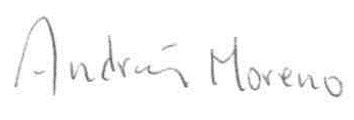 Andrés Moreno